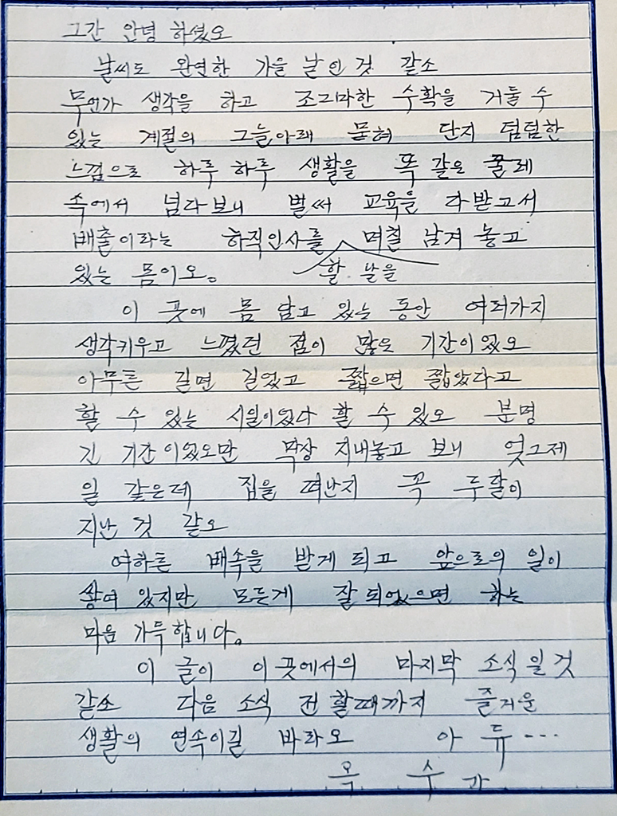 그간 안녕 하셨오
날씨도 완연한 가을 날인 것 같소
무언가 생각을 하고 조그마한 수확을 거둘 수
있는 계절의 그늘아래 묻혀 단지 텁텁한
느낌으로 하루 하루 생활을 똑 같은 굴레
속에서 넘다보니 벌써 교육을 다받고서
배출이라는 하직인사를 며칠 남겨 놓고
할 날을
있는 몸이오。
이 곳에 몸 담고 있는 동안 여러가지
생각키우고 느꼈던 점이 많은 기간이었오
아무튼 길면 길었고 짧으면 짧았다고
할 수 있는 시일이었다 할 수 있오 분명
긴 기간이었오만 막상 지내놓고 보니 엊그제
일 같은데 집을 떠난지 꼭 두달이
지난 것 같오
여하튼 배속을 받게 되고 앞으로의 일이
쌓여 있지만 모든게 잘 되었으면 하는
마음 가득합니다。
이 글이 이 곳에서의 마지막 소식일것
같소 다음 소식 전할때까지 즐거운
생활의 연속이길 바라오 아 듀…
옥 수 가